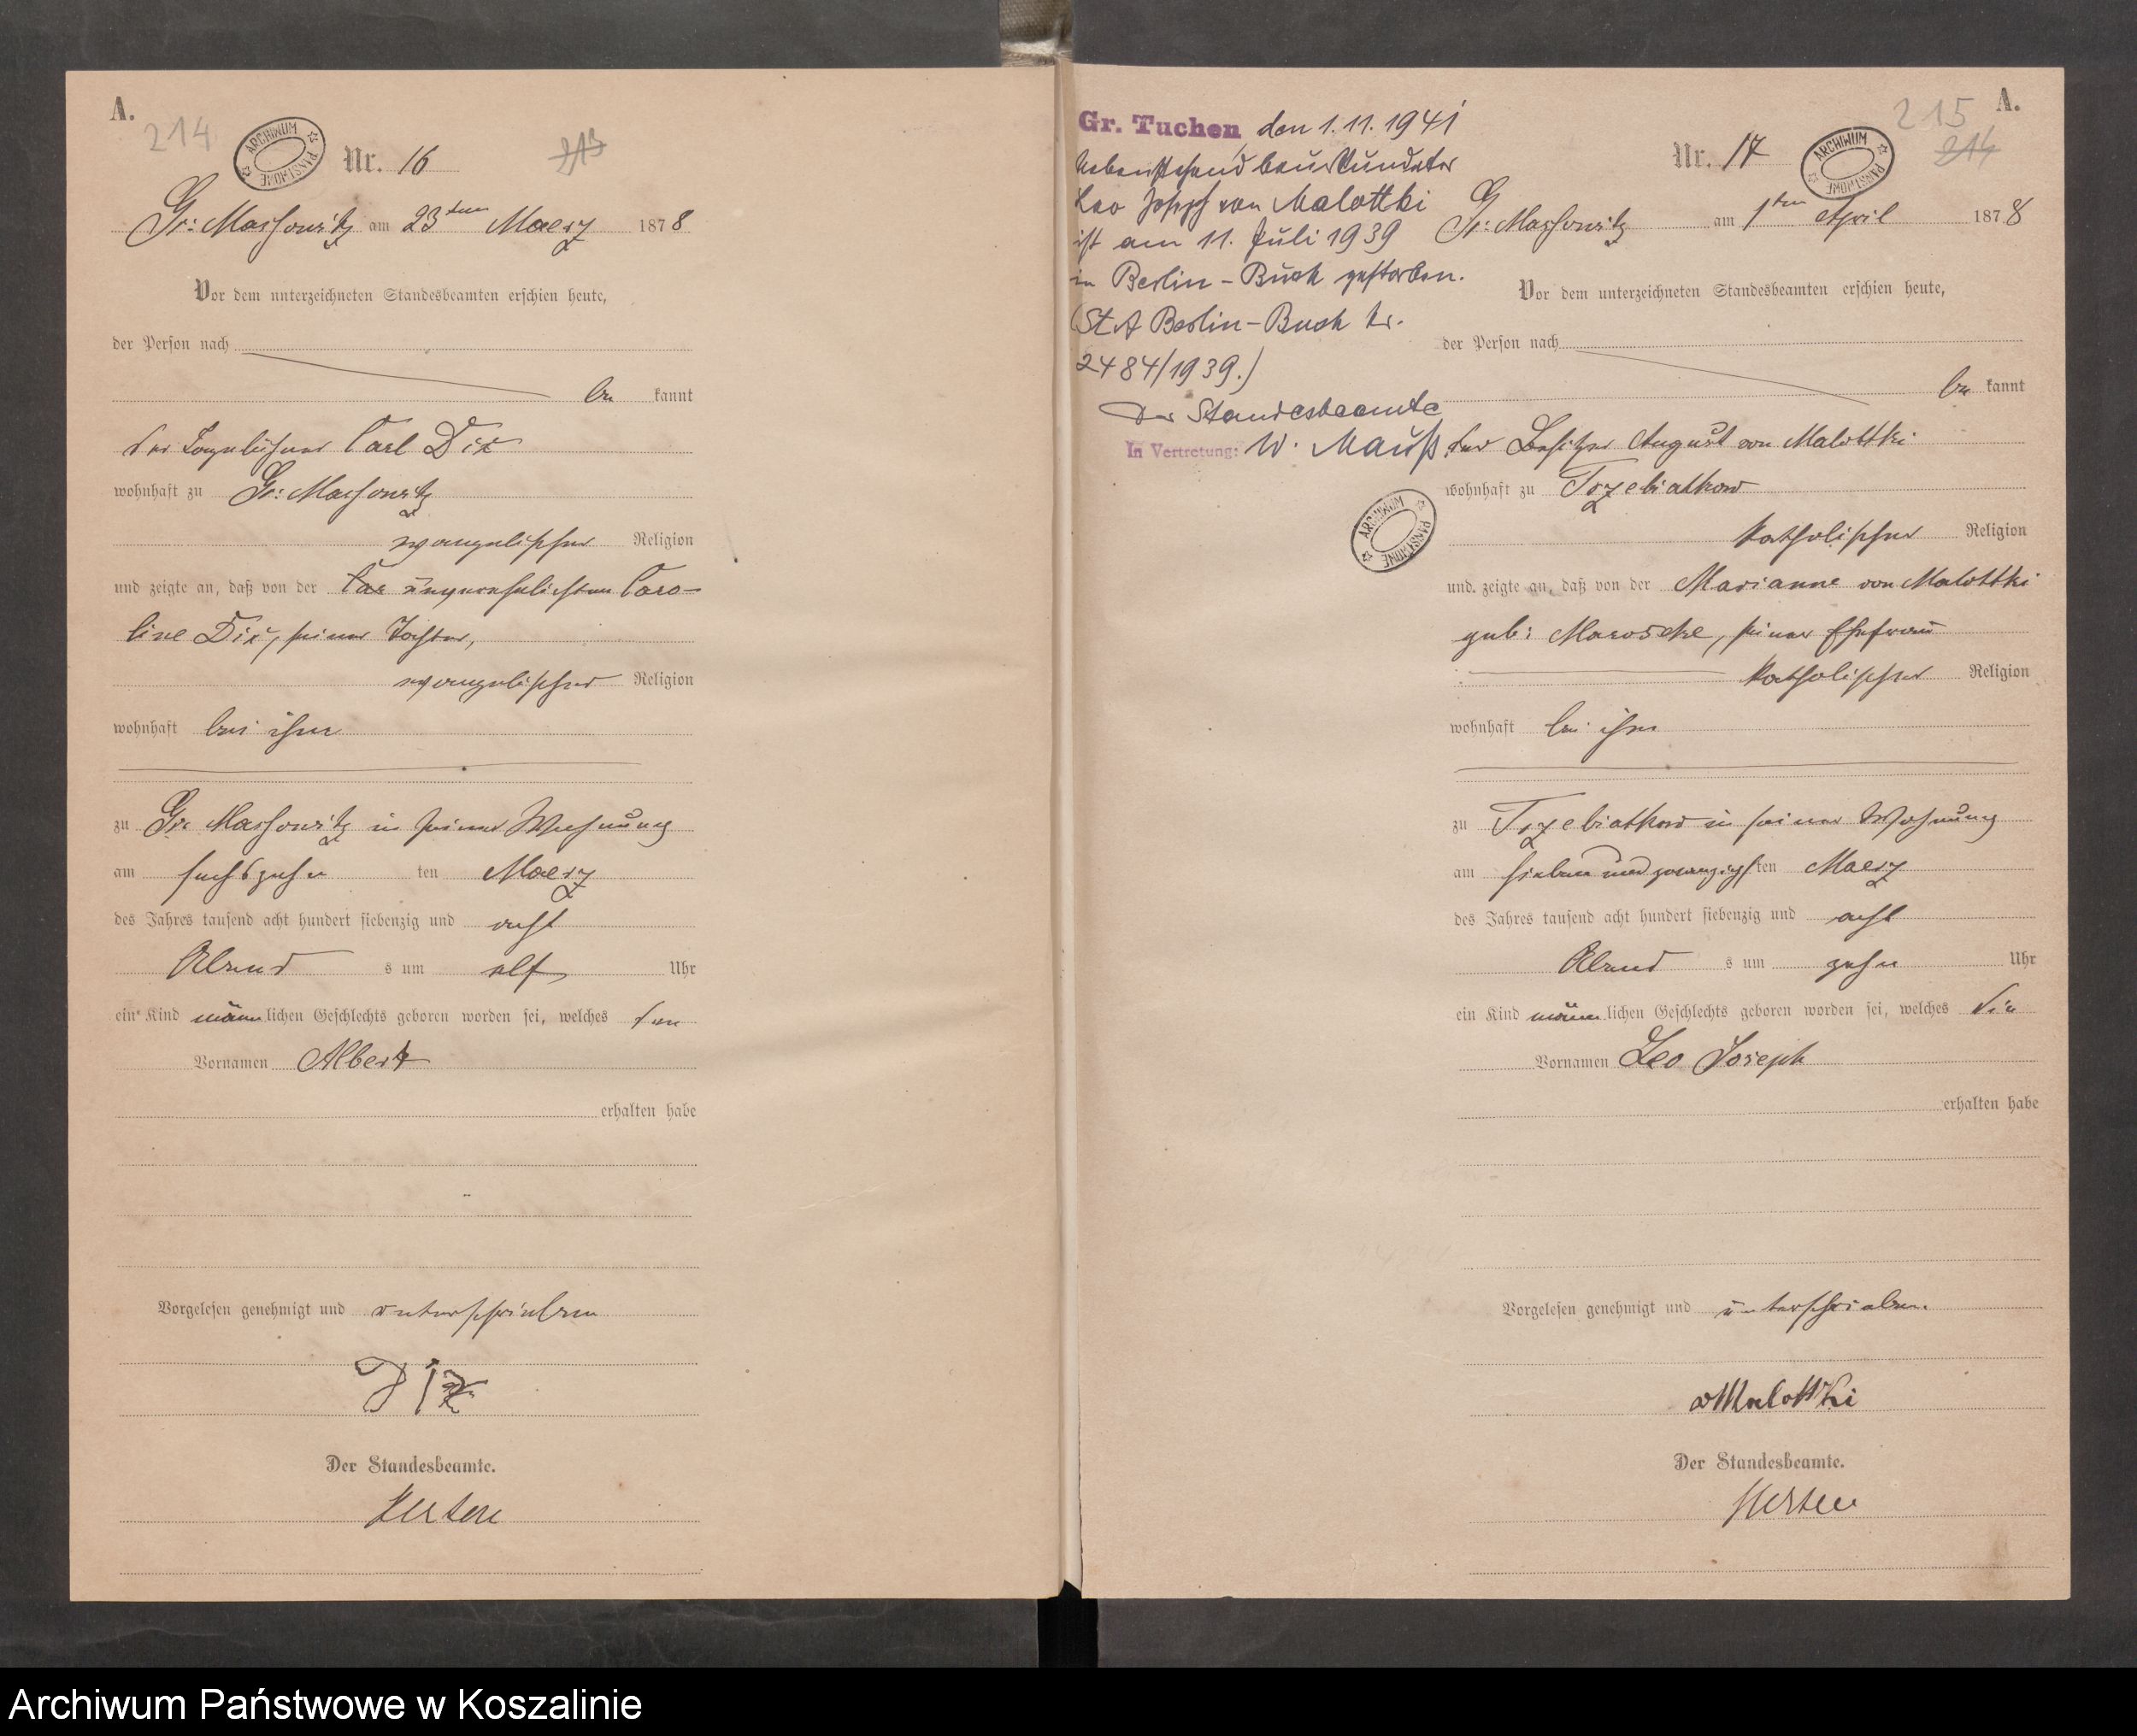 A.
214
ARCHIWUM PAŃSTWOWE
Nr. 16
213
Gr: Massowitz am 23ten Maerz 1878
Vor dem unterzeichneten Standesbeamten erschien heute,
der Person nach
be kannt
der Carl Dix
wohnhaft zu Gr: Massowitz
evangelischer Religion
und zeigte an, daß von der Car unverehelichten Caro-
line Dix, seiner Tochter,
evangelischer Religion
wohnhaft bei ihm
zu Gr: Massowitz in seiner Wohnung
am sechszehn ten Maerz
des Jahres tausend acht hundert siebenzig und acht
Abend s um elf Uhr
ein Kind männ lichen Geschlechts geboren worden sei, welches den
Vornamen Albert
erhalten habe
Vorgelesen genehmigt und unterschrieben
Dix
Der Standesbeamte.
Gr. Tuchen den 1.11.1941
Nebenstehend beurkundeter
Leo Joseph von Malottki
ist am 11. Juli 1939
in Berlin-Buch gestorben.
(St.A Berlin-Buch Nr.
2484/1939.)
Der Standesbeamte
In Vertretung: W. Mauß.
ARCHIWUM PAŃSTWOWE
A.
215
ARCHIWUM PAŃSTWOWE
Nr. 17
214
Gr: Massowitz am 1ten April 1878
Vor dem unterzeichneten Standesbeamten erschien heute,
der Person nach
be kannt
der Besitzer August von Malottki
wohnhaft zu Trzebiatkow
katholischer Religion
und zeigte an, daß von der Marianne von Malottki
geb: Maroschke, seiner Ehefrau
katholischer Religion
wohnhaft bei ihm
zu Trzebiatkow in seiner Wohnung
am sieben und zwanzigsten Maerz
des Jahres tausend acht hundert siebenzig und acht
Abend s um zehn Uhr
ein Kind männ lichen Geschlechts geboren worden sei, welches die
Vornamen Leo Joseph
erhalten habe
Vorgelesen genehmigt und unterschrieben.
vMalottki
Der Standesbeamte.
Archiwum Państwowe w Koszalinie